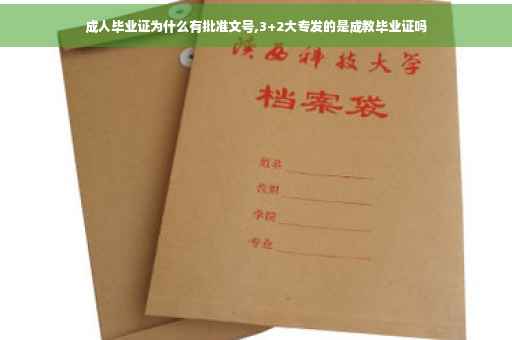 成人毕业证为什么有批准文号,3+2大专发的是成教毕业证吗
陕西科技大学
档案袋
姓名
学院
专业